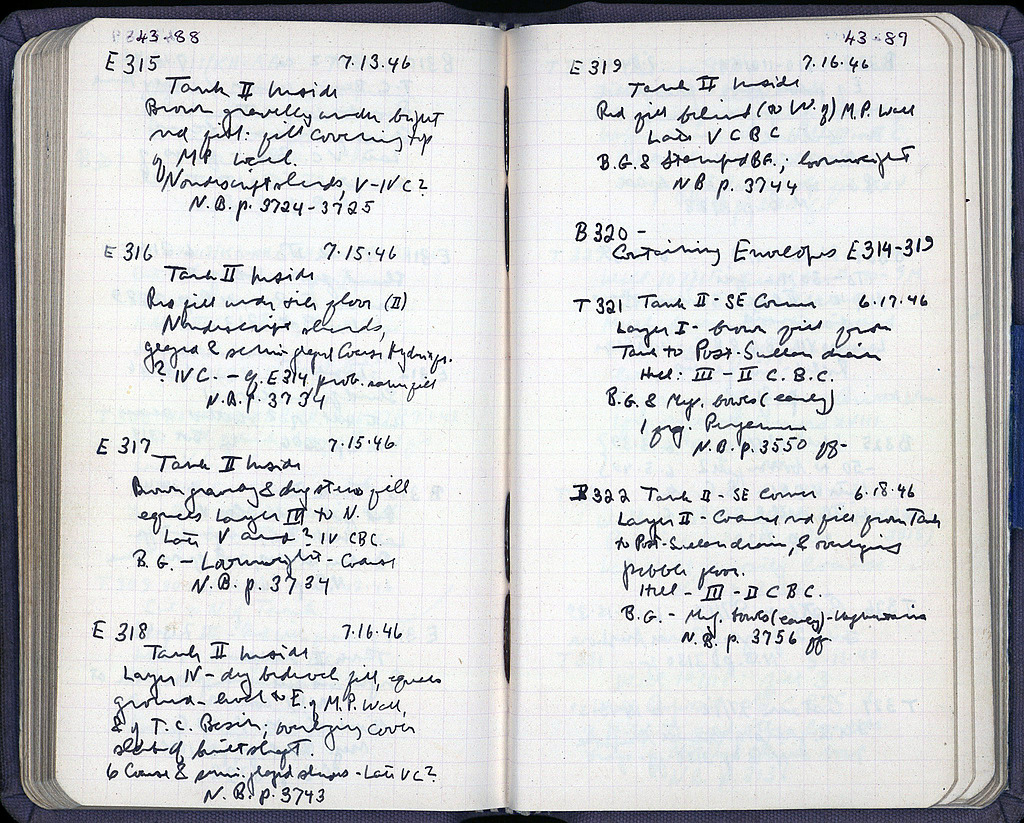 43-88
E 315 7.13.46
Tank II Inside
Brown gravelly under bright
red fill: fill covering top
of M.P. Wall.
Nondescript sherds, V-IV C?
N.B. p. 3724-3725
E 316 7.15.46
Tank II Inside
Red fill under tile floor (II)
Nondescript sherds,
glazed & semi-glazed Coarse Hydrias.
? IV C. - cf. E 314 prob. same fill
N.B. p. 3734
E 317 7.15.46
Tank II Inside
Brown gravelly & dug stereo fill
equals Layer III to N.
Late V and ? IV C BC.
B.G. - Loomweight - Coarse
N.B. p. 3734
E 318 7.16.46
Tank II Inside
Layer IV - dug bedrock fill, equals
ground-level to E. of M.P. Wall,
& of T.C. Basin; overlying cover
slab of built shaft.
6 Coarse & semi-glazed sherds - Late V C?
N.B. p. 3743
43-89
E 319 7.16.46
Tank II Inside
Red fill behind (to W. of) M.P. Wall
Late V C B C
B.G. & Stamped B.G.; loomweight
N B p. 3744
B 320 -
Containing Envelopes E 314-319
T 321 Tank II - SE Corner 6.17.46
Layer I - brown fill from
Tank to Post-Sullan drain
Hell: III - II C. B. C.
B.G. & Meg. bowls (early)
1 frg. Pergamene
N.B. p. 3550 ff -
B 322 Tank II - SE Corner 6.18.46
Layer II - Coarse red fill from Tank
to Post-Sullan drain, & overlying
pebble floor.
Hell - III - II C B C.
B.G. - Meg. bowls (early) -
N.B. p. 3756 ff